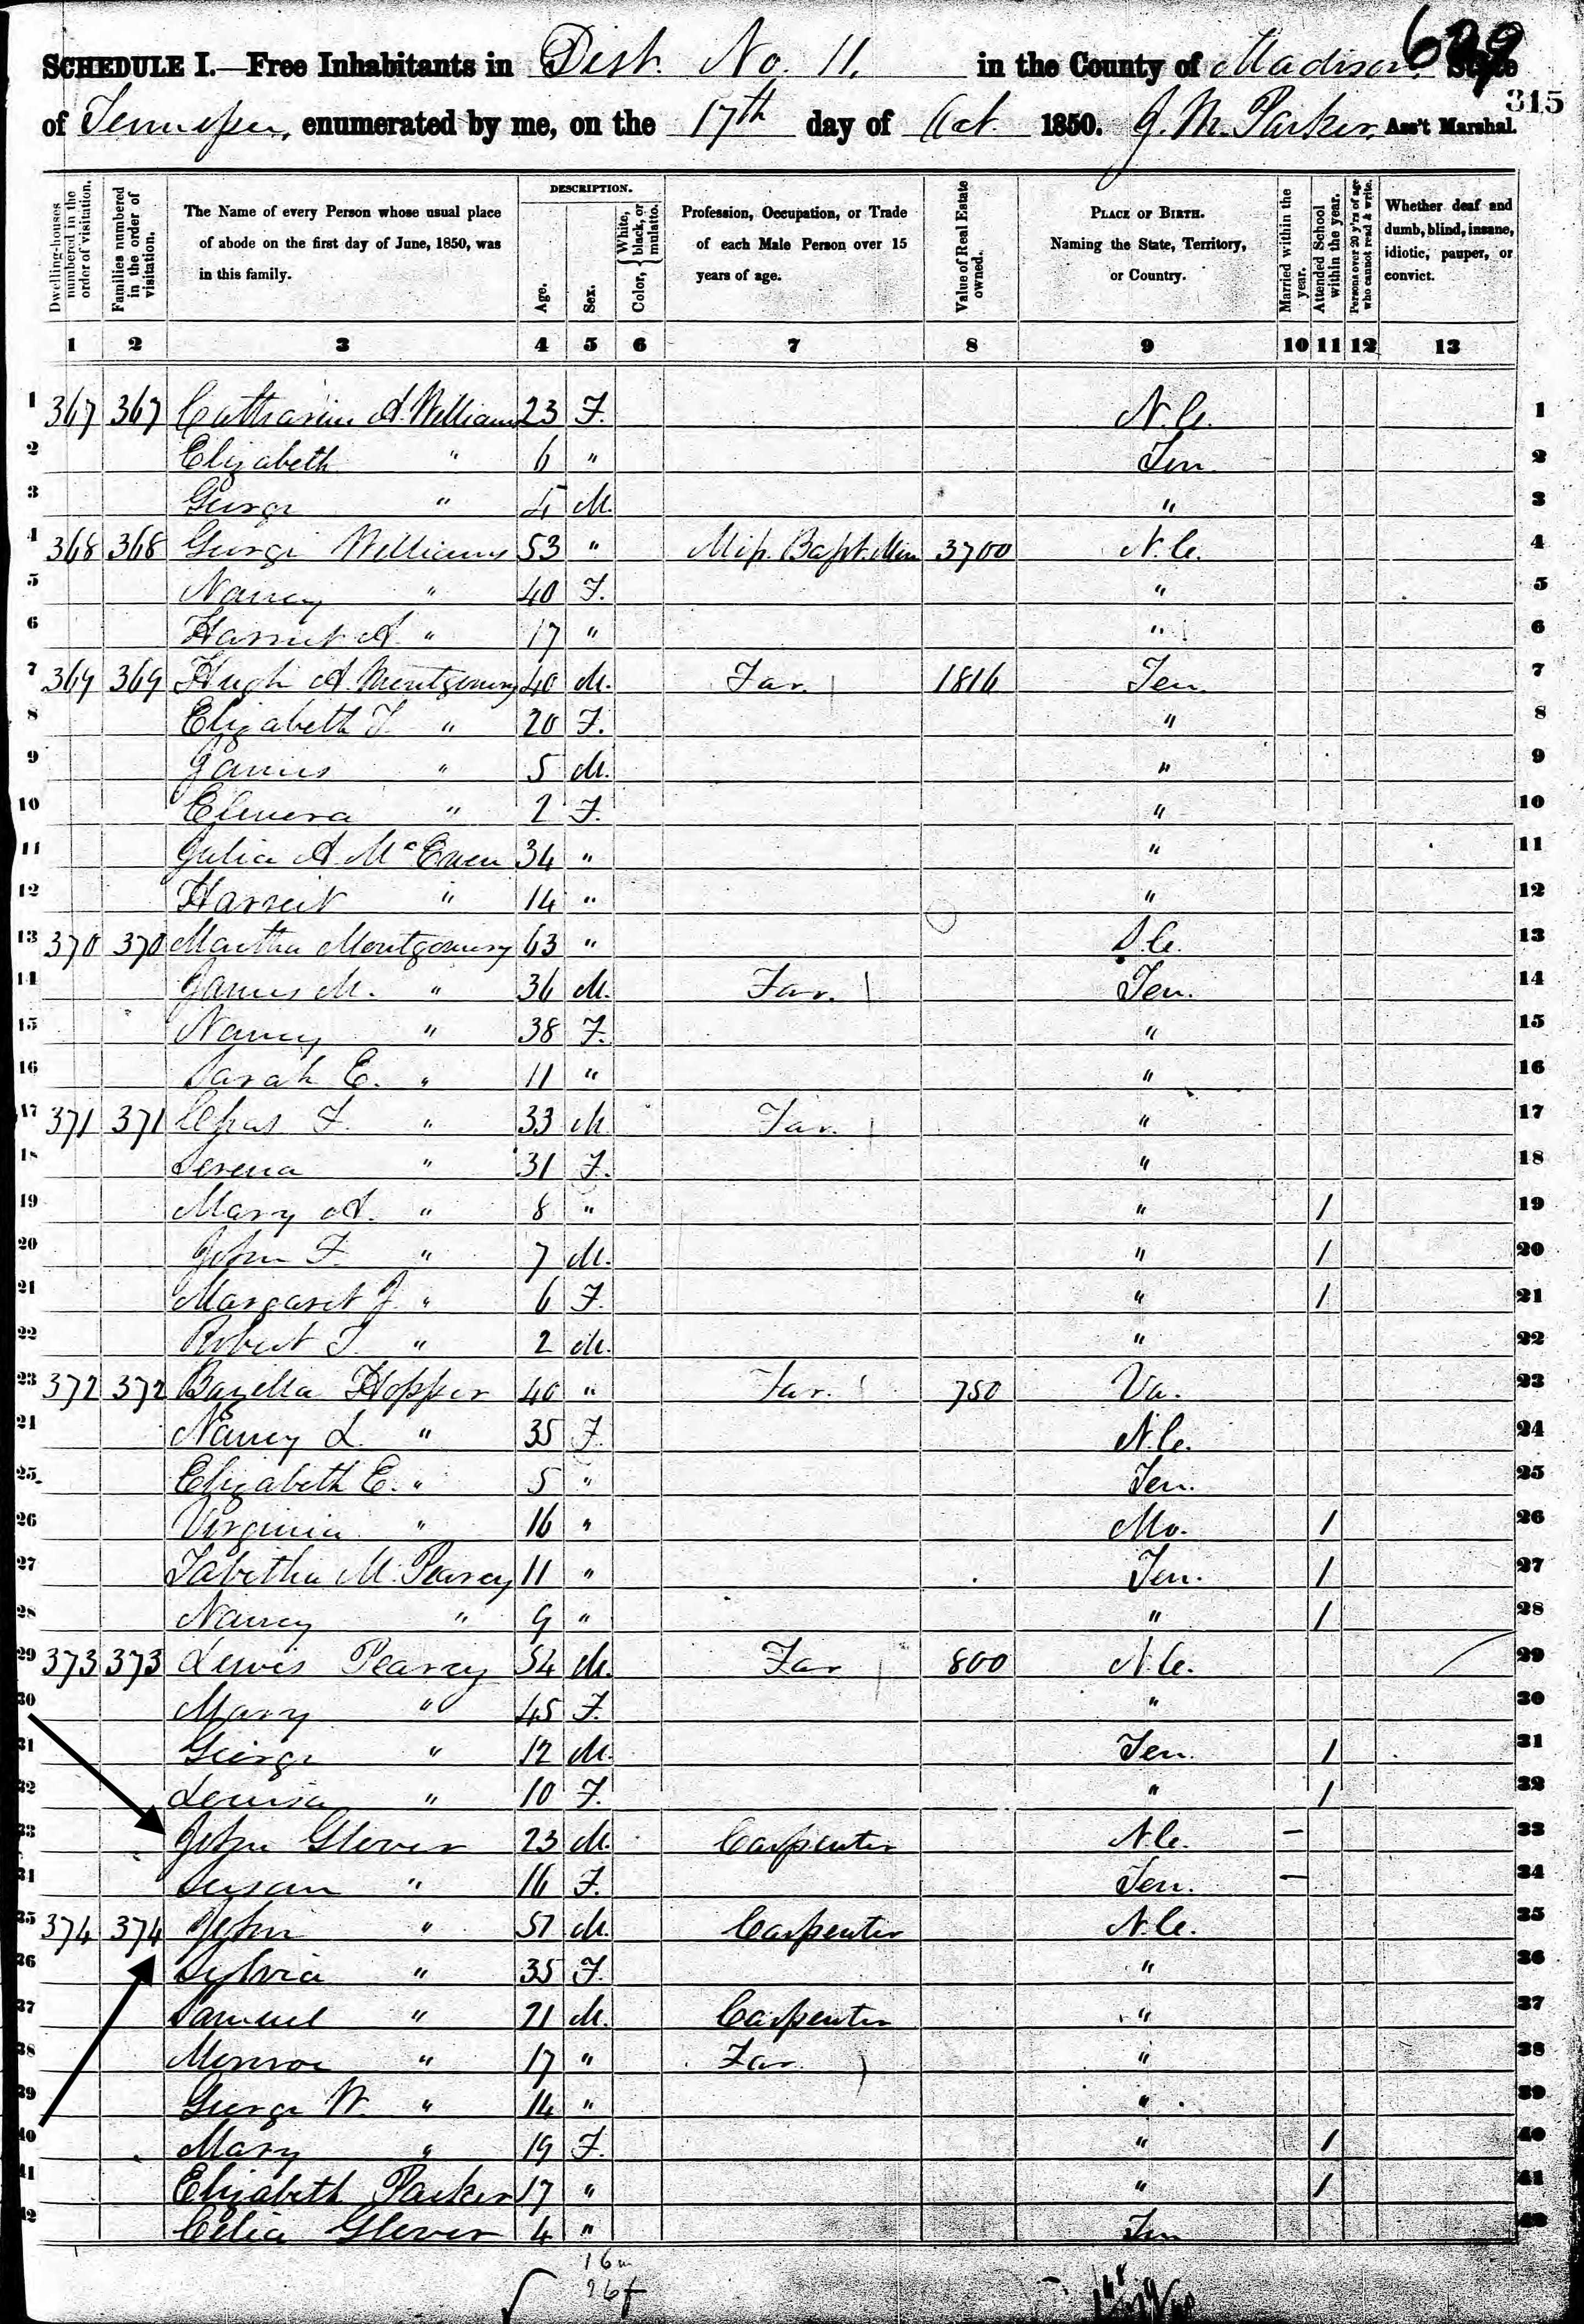 609
SCHEDULE I.—Free Inhabitants in Dist. No. 11. in the County of Madison State
315
of Tennessee, enumerated by me, on the 17th day of Oct. 1850. J. M. Parker, Ass't Marshal.
Dwelling-houses numbered in the order of visitation.
Families numbered in the order of visitation.
The Name of every Person whose usual place of abode on the first day of June, 1850, was in this family.
DESCRIPTION.
Age.
Sex.
Color, { White, black, or mulatto.
Profession, Occupation, or Trade of each Male Person over 15 years of age.
Value of Real Estate owned.
PLACE OF BIRTH. Naming the State, Territory, or Country.
Married within the year.
Attended School within the year.
Persons over 20 y'rs of age who cannot read & write.
Whether deaf and dumb, blind, insane, idiotic, pauper, or convict.
1 2 3 4 5 6 7 8 9 10 11 12 13
1 367 367 Catharine A. Williams 23 F. N.C. 1
2 Elizabeth " 6 " Ten 2
3 George " 4 M. " 3
4 368 368 George Williams 53 " Miss. Bapt. Min 3700 N.C. 4
5 Nancy " 40 F. " 5
6 Harriet A. " 17 " " 6
7 369 369 Hugh A. Montgomery 40 M. Far. 1816 Ten. 7
8 Elizabeth T. " 20 F. " 8
9 James " 5 M. " 9
10 Elmera " 2 F. " 10
11 Julia A. McEwen 34 " " 11
12 Harriet " 14 " " 12
13 370 370 Martha Montgomery 63 " S.C. 13
14 James M. " 36 M. Far. Ten. 14
15 Nancy " 38 F. " 15
16 Sarah E. " 11 " " 16
17 371 371 F. " 33 M Far. " 17
18 Serena " 31 F. " 18
19 Mary A. " 8 " " / 19
20 John F. " 7 M. " / 20
21 Margaret J. " 6 F. " / 21
22 Robert T. " 2 M. " 22
23 372 372 Bazilla Hopper 40 " Far. 750 Va. 23
24 Nancy L. " 35 F. N.C. 24
25 Elizabeth E. " 5 " Ten. 25
26 Virginia " 16 " Mo. / 26
27 Tabitha M. Pearcy 11 " Ten. / 27
28 Nancy " 9 " " / 28
29 373 373 Lewis Pearcy 54 M. Far 800 N.C. 29
30 Mary " 45 F. " 30
31 George " 12 M. Ten. / 31
32 Louisa " 10 F. " / 32
33 John Glover 23 M. Carpenter N.C. — 33
34 Susan " 16 F. Ten. — 34
35 374 374 John " 57 M. Carpenter N.C. 35
36 Sylvia " 35 F. " 36
37 Samuel " 21 M. Carpenter " 37
38 Monroe " 17 " Far. " 38
39 George W. " 14 " " 39
40 Mary " 19 F. " / 40
41 Elizabeth Parker 17 " " / 41
42 Celia Glover 4 " Ten 42
16 m
26 f